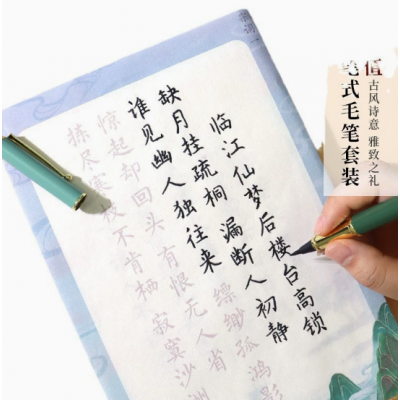 临江仙梦后楼台高锁
缺月挂疏桐 漏断人初静
谁见幽人独往来 缥缈孤鸿影
惊起却回头 有恨无人省
拣尽寒枝不肯栖 寂寞沙洲
值
古风诗意 雅致之礼
笔式毛笔套装